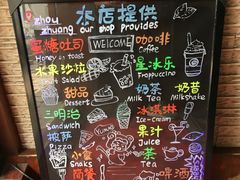 本店提供
zhou
zhuang our shop provides
蜜糖吐司
Honey toast
WELCOME
咖啡
Coffee
水果沙拉
Salad
星冰乐
Frappuccino
甜品
Dessert
奶茶
Milk Tea
奶昔
Milkshake
三明治
Sandwich
冰淇淋
Ice-Cream
披萨
Pizza
果汁
Juice
小食
Snaks
茶
Tea
简餐
啤酒